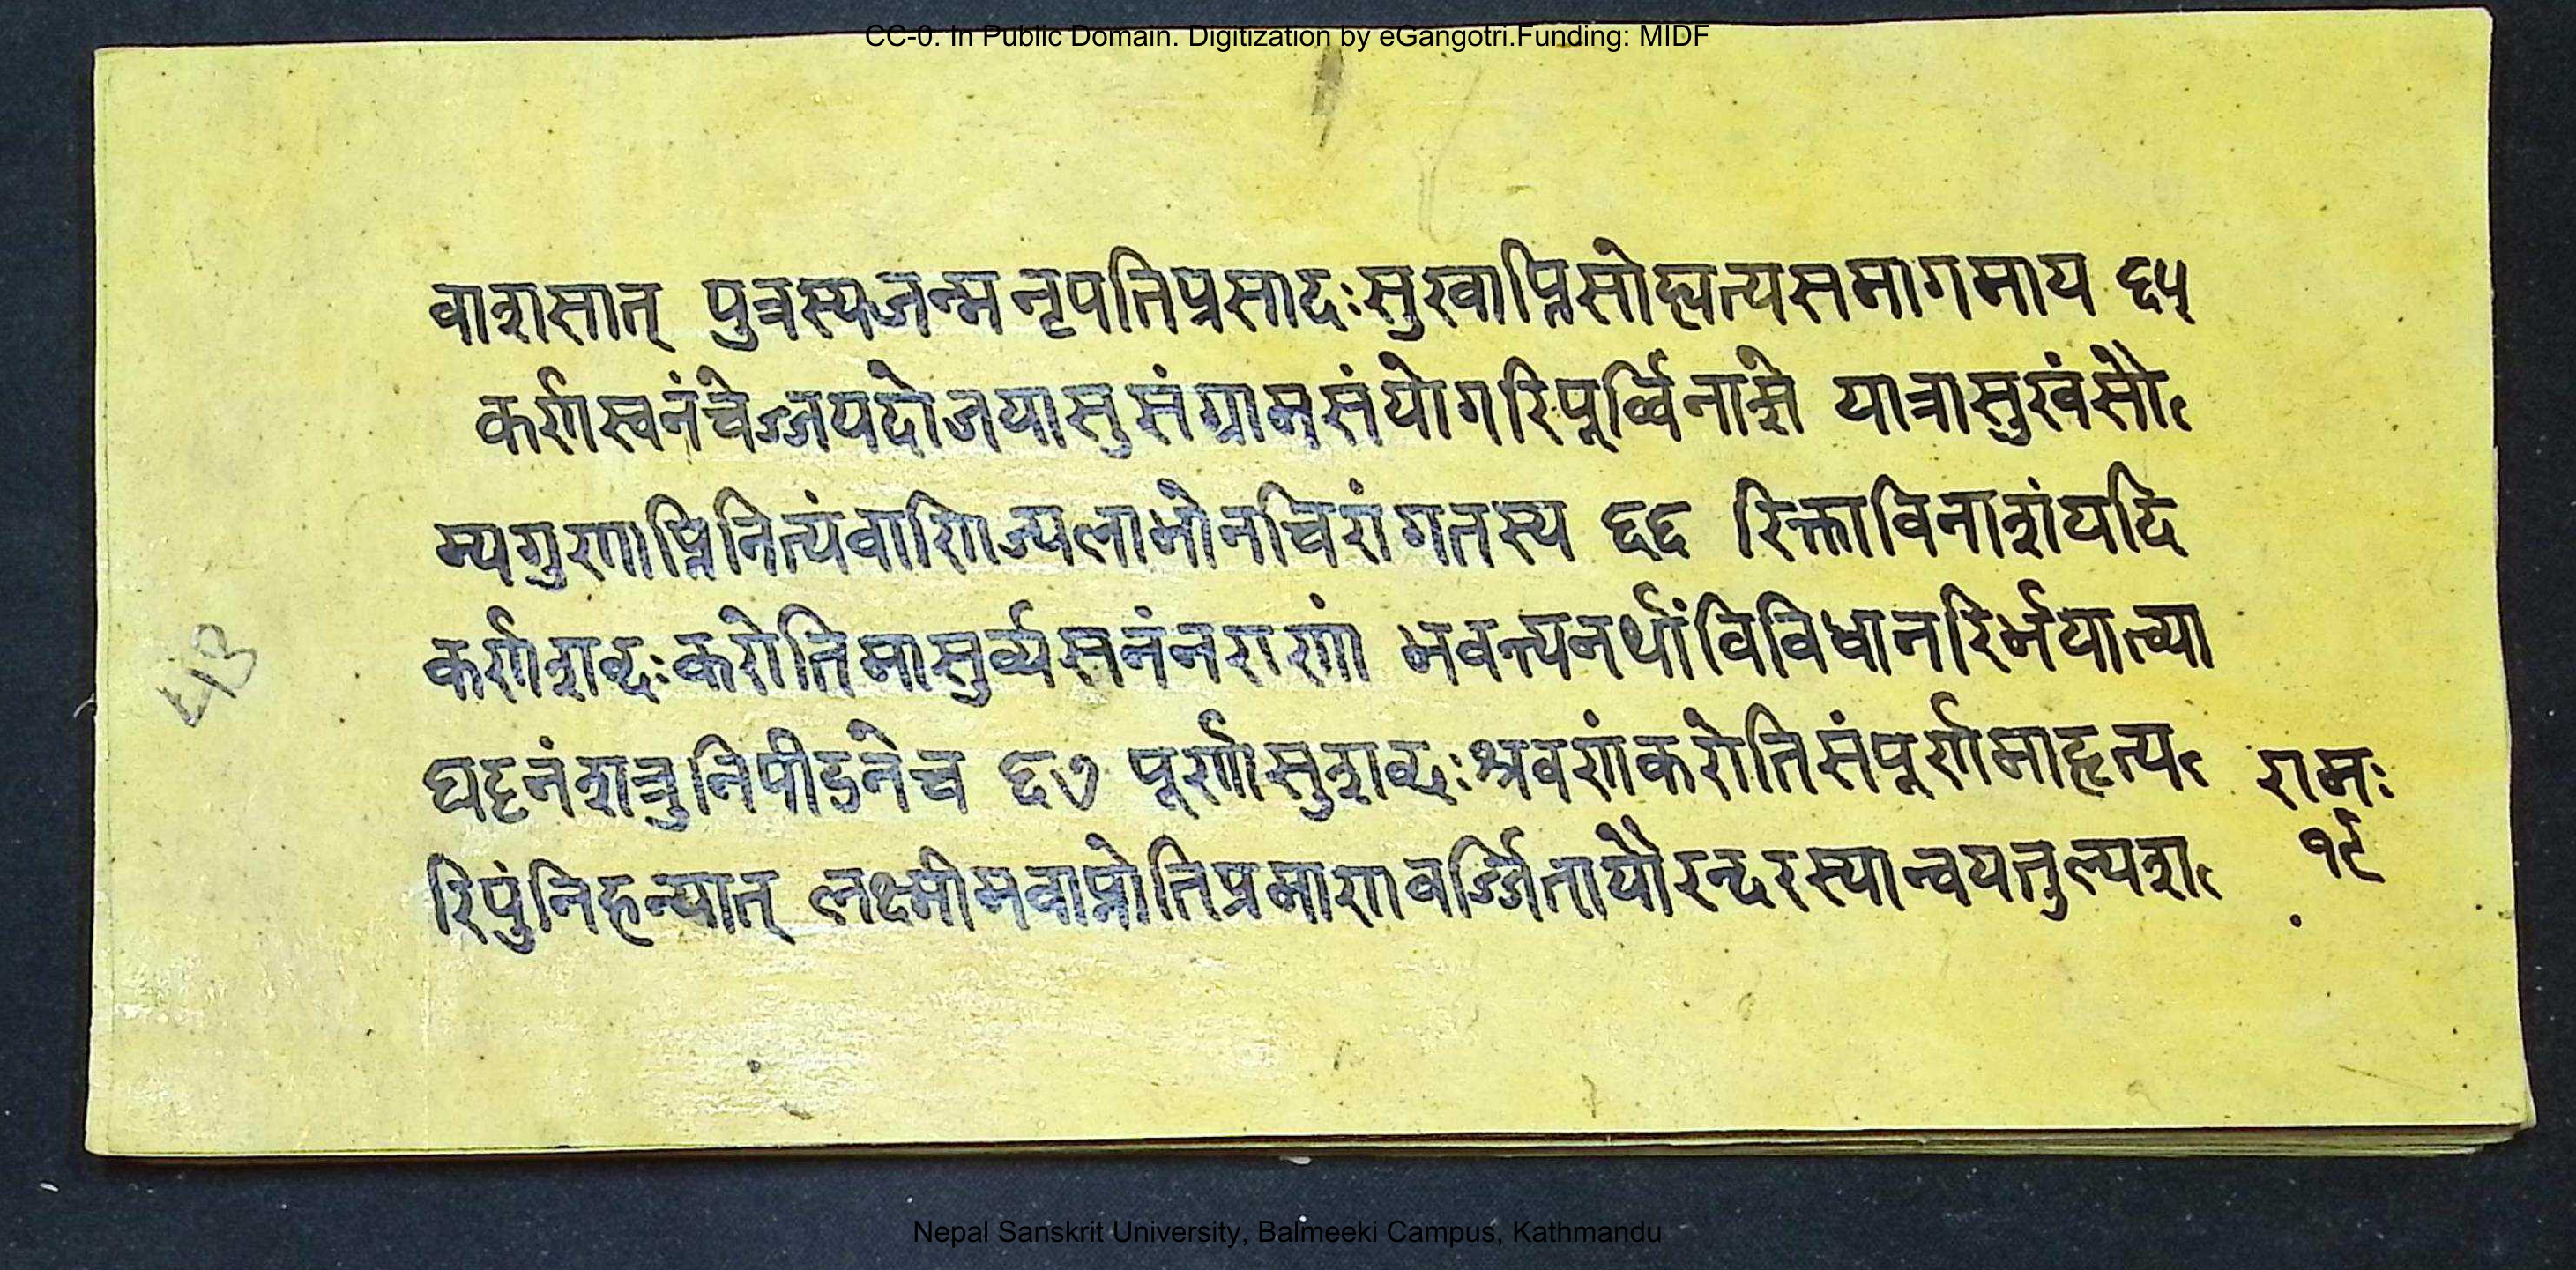 CC-0. In Public Domain. Digitization by eGangotri.Funding: MIDF
वाशसात् पुत्रस्यजन्म नृपतिप्रसादःसुखाप्तिसोह्यत्यसमागमाय ६५
कर्णस्वनंचेज्जयदोजयासु संग्रामसंयोगरिपूर्व्विनाशे यात्रासुखंसौ
म्यगुणाप्तिनित्यंवाणिज्यलाभोनचिरांगतस्य ६६ रिक्ताविनाशंयदि
कर्णशब्दःकरोतिमासुर्व्यसनंनराणां भवन्त्यनर्थांविविधानरिर्भयात्व्या
घट्टनंशत्रुनिपीडनेच ६७ पूर्णासुशब्दःश्रवणंकरोतिसंपूर्णमाहत्य
रिपुंनिहन्यात् लक्ष्मीमवाप्नोतिप्रमाणवर्ज्जितायौरन्दरस्यान्वयतुल्यश
रामः
१९
Nepal Sanskrit University, Balmeeki Campus, Kathmandu